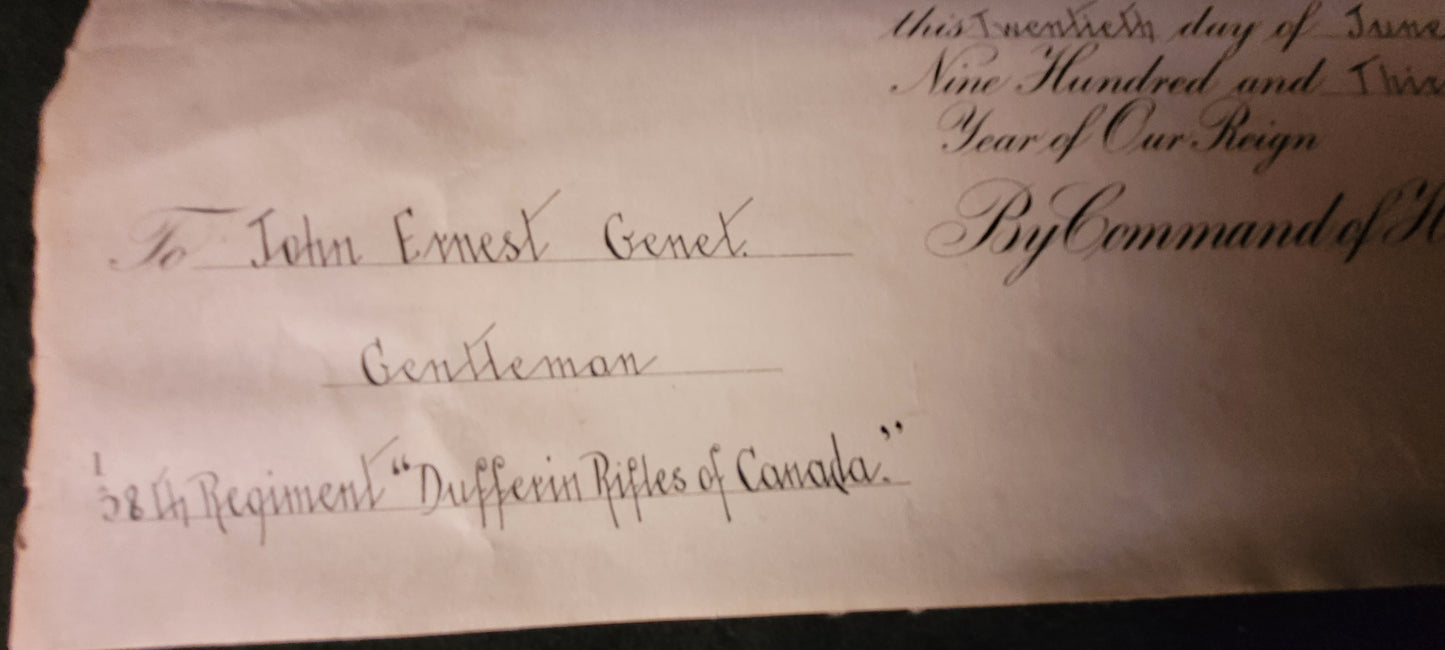 this Twentieth day of June
Nine Hundred and
Year of Our Reign
By Command of
To John Ernest Genet.
Gentleman
1
38th Regiment “Dufferin Rifles of Canada.”